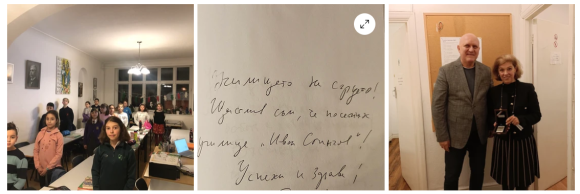 "Училището на сърцето!
Щастлив съм, че посетих
училище „Иван Станчов"!
Успехи и здраве!